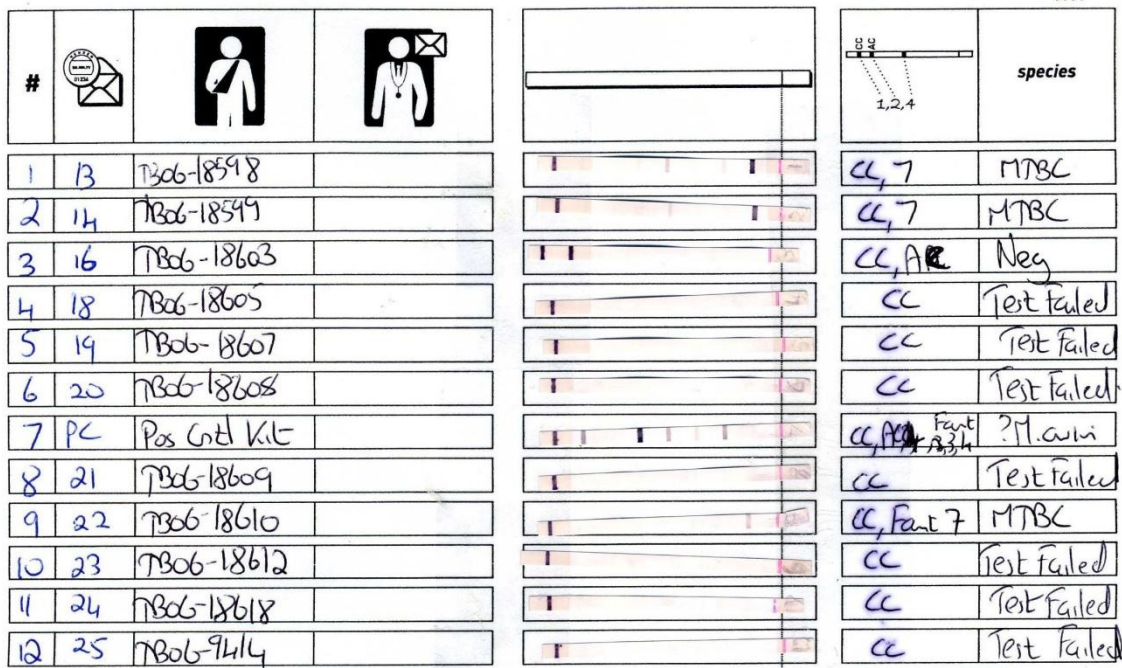 # CC AC 1,2,4 species
1 13 TB06-18598 CC, 7 MTBC
2 14 TB06-18599 CC, 7 MTBC
3 16 TB06-18603 CC, AC Neg
4 18 TB06-18605 CC Test Failed
5 19 TB06-18607 CC Test Failed
6 20 TB06-18608 CC Test Failed
7 PC Pos Cntl Kit CC, Faint
8 21 TB06-18609 CC Test Failed
9 22 TB06-18610 CC, Faint 7 MTBC
10 23 TB06-18612 CC Test Failed
11 24 TB06-18618 CC Test Failed
12 25 TB06-9414 CC Test Failed